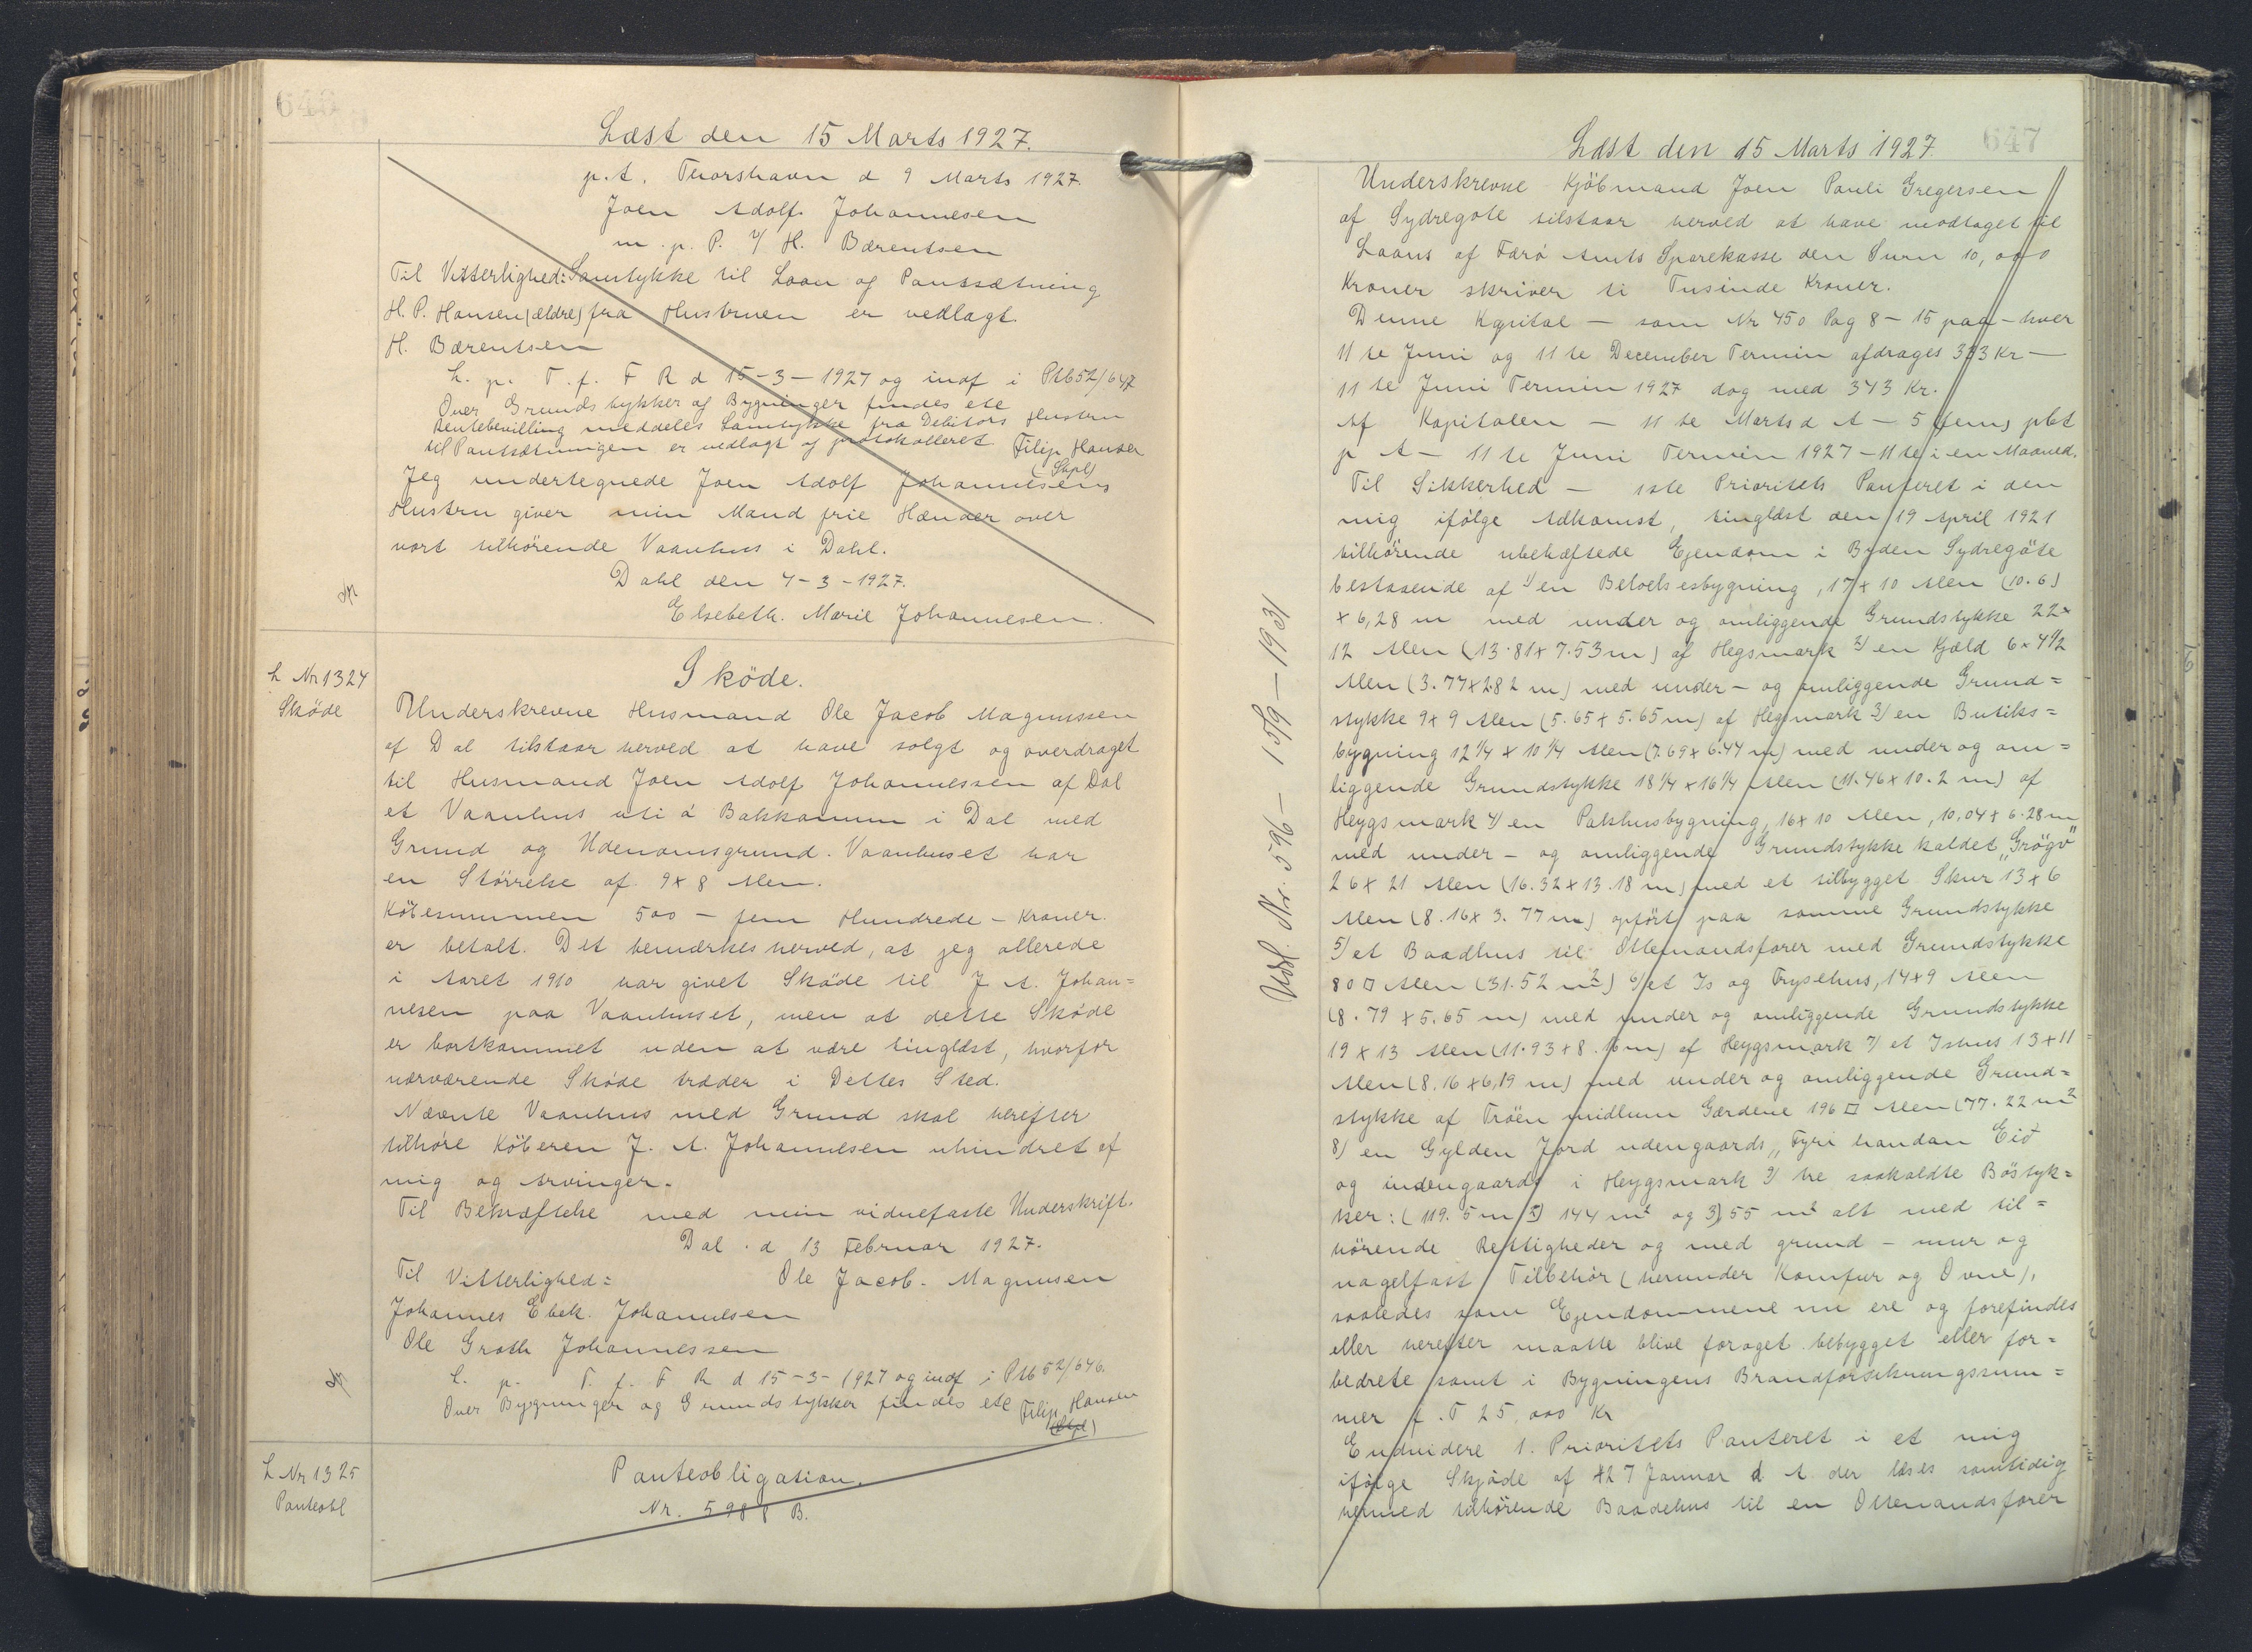 Læst den 15 Marts 1927.
p.t. Thorshavn d 9 Marts 1927.
Joen Adolf Johannesen
m. p. P. v/ H. Bærentsen
Til Vitterlighed: Samtykke til Laan og Pantsætning
H. P. Hansen (ældre) fra Hustruen er vedlagt.
H. Bærentsen
L. p. T. f. F R d 15-3-1927 og indf i Ptb 52/647
Over Grundstykker og Bygninger findes ete
Rentebevilling meddeles Samtykke fra Debitors Hustru
til Pantsætningen er vedlagt og protokolleret Filip Hansen
(Stpl)
Jeg undertegnede Joen Adolf Johannesens
Hustru giver min Mand frie Hænder over
vort tilhörende Vaanhus i Dahl.
Dahl den 4-3-1927.
Elsebeth. Marie Johannesen.
L Nr 1324
Sköde
Sköde.
Underskrevne Husmand Ole Jacob Magnussen
af Dal tilstaar herved at have solgt og overdraget
til Husmand Joen Adolf Johannessen af Dal
et Vaanhus uti á Bakkanum i Dal med
Grund og Udenomsgrund. Vaanhuset har
en Störrelse af 9 x 8 Alen.
Köbesummen 500 - fem Hundrede - Kroner.
er betalt. Det bemærkes herved, at jeg allerede
i Aaret 1910 har givet Sköde til J. A. Johan=
nesen paa Vaanhuset, men at dette Sköde
er bortkommet uden at være tinglæst, hvorfor
nærværende Sköde træder i Dettes Sted.
Nævnte Vaanhus med Grund skal herefter
tilhöre Köberen J. A. Johannesen uhindret af
mig og Arvinger.
Til Bekræftelse med min vidnefaste Underskrift.
Dal. d 13 Februar 1927.
Til Vitterlighed: Ole Jacob. Magnusen
Johannes Ebek. Johannesen
Ole Groth Johannessen
L. p. T. f. F R d 15-3-1927 og indf i Ptb 52/646.
Over Bygninger og Grundstykker findes ete Filip Hansen
(Stpl)
L Nr 1325
Panteobl
Panteobligation.
Nr. 5988 B.
647
Læst den 15 Marts 1927
Underskrevne Kjöbmand Joen Pauli Gregersen
af Sydregöte tilstaar herved at have modtaget til
Laans af Færö Amts Sparekasse den Sum 10,000
Kroner skriver ti Tusinde Kroner.
Denne Kapital - som Nr 450 Pag 8 - 15 paa - hver
11 te Juni og 11 te December Termin afdrages 333 Kr -
11 te Juni Termin 1927 dog med 343 Kr.
Af Kapitalen - 11 te Marts d A - 5 (fem) pCt
p A - 11 te Juni Termin 1927 - 11 te i en Maaned.
Til Sikkerhed - 1ste Prioritets Panteret i den
mig ifölge Adkomst, tinglæst den 19 April 1921
tilhörende ubehæftede Ejendom i Byden Sydregöte
bestaaende af 1) en Beboelsesbygning, 17 x 10 Alen (10.6)
x 6,28 m med under og omliggende Grundstykke 22 x
12 Alen (13.81 x 7.53 m) af Hegsmark 2) en Kjæld 6 x 4 1/2
Alen (3.77 x 2.82 m) med under - og omliggende Grund=
stykke 9 x 9 Alen (5.65 x 5.65 m) af Hegsmark 3) en Butiks=
bygning 12 1/4 x 10 1/4 Alen (7.69 x 6.44 m) med under og om=
liggende Grundstykke 18 1/4 x 16 1/4 Alen (11.46 x 10.2 m) af
Heygsmark 4) en Pakhusbygning, 16 x 10 Alen, 10,04 x 6.28 m
med under - og omliggende Grundstykke kaldet „Grögv"
26 x 21 Alen (16.32 x 13.18 m) med et tilbygget Skur 13 x 6
Alen (8.16 x 3.77 m) opfört paa samme Grundstykke
5) et Baadhus til Ottemandsfarer med Grundstykke
80 □ Alen (31.52 m2) 6) et Is og Frysehus, 14 x 9 Alen
(8.79 x 5.65 m) med under og omliggende Grundstykke
19 x 13 Alen (11.93 x 8.16 m) af Heygsmark 7) et Ishus 13 x 11
Alen (8.16 x 6,19 m) med under og omliggende Grund=
stykke af Tröen millum Gærdene 196 □ Alen (77.22 m2
8) en Gylden Jord udengaards „Fyri handan Eiđ
og indengaards i Heygsmark 9) tre saakaldte Böstyk=
ker: (119.5 m 2) 144 m2 og 3) 55 m2 alt med til=
hörende Rettigheder og med grund - mur og
nagelfast Tilbehör (herunder Komfur og Ovne),
saaledes som Ejendommene nu ere og forefindes
eller herefter maatte blive foröget bebygget eller for=
bedrete samt i Bygningens Brandforsikringssum=
mer f. T 25,000 Kr
Endvidere 1. Prioritets Panteret i et mig
ifölge Skjöde af 27 Januar d A der læses samtidig
hermed tilhörende Baadehus til en Ottemandsfarer
Udsl. Nr. 596 - 15/9 - 1931